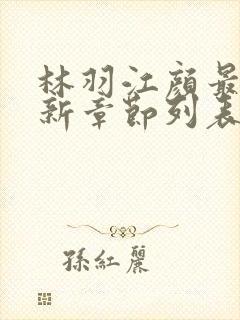 林羽江顔最
新章節列表
孫紅麗